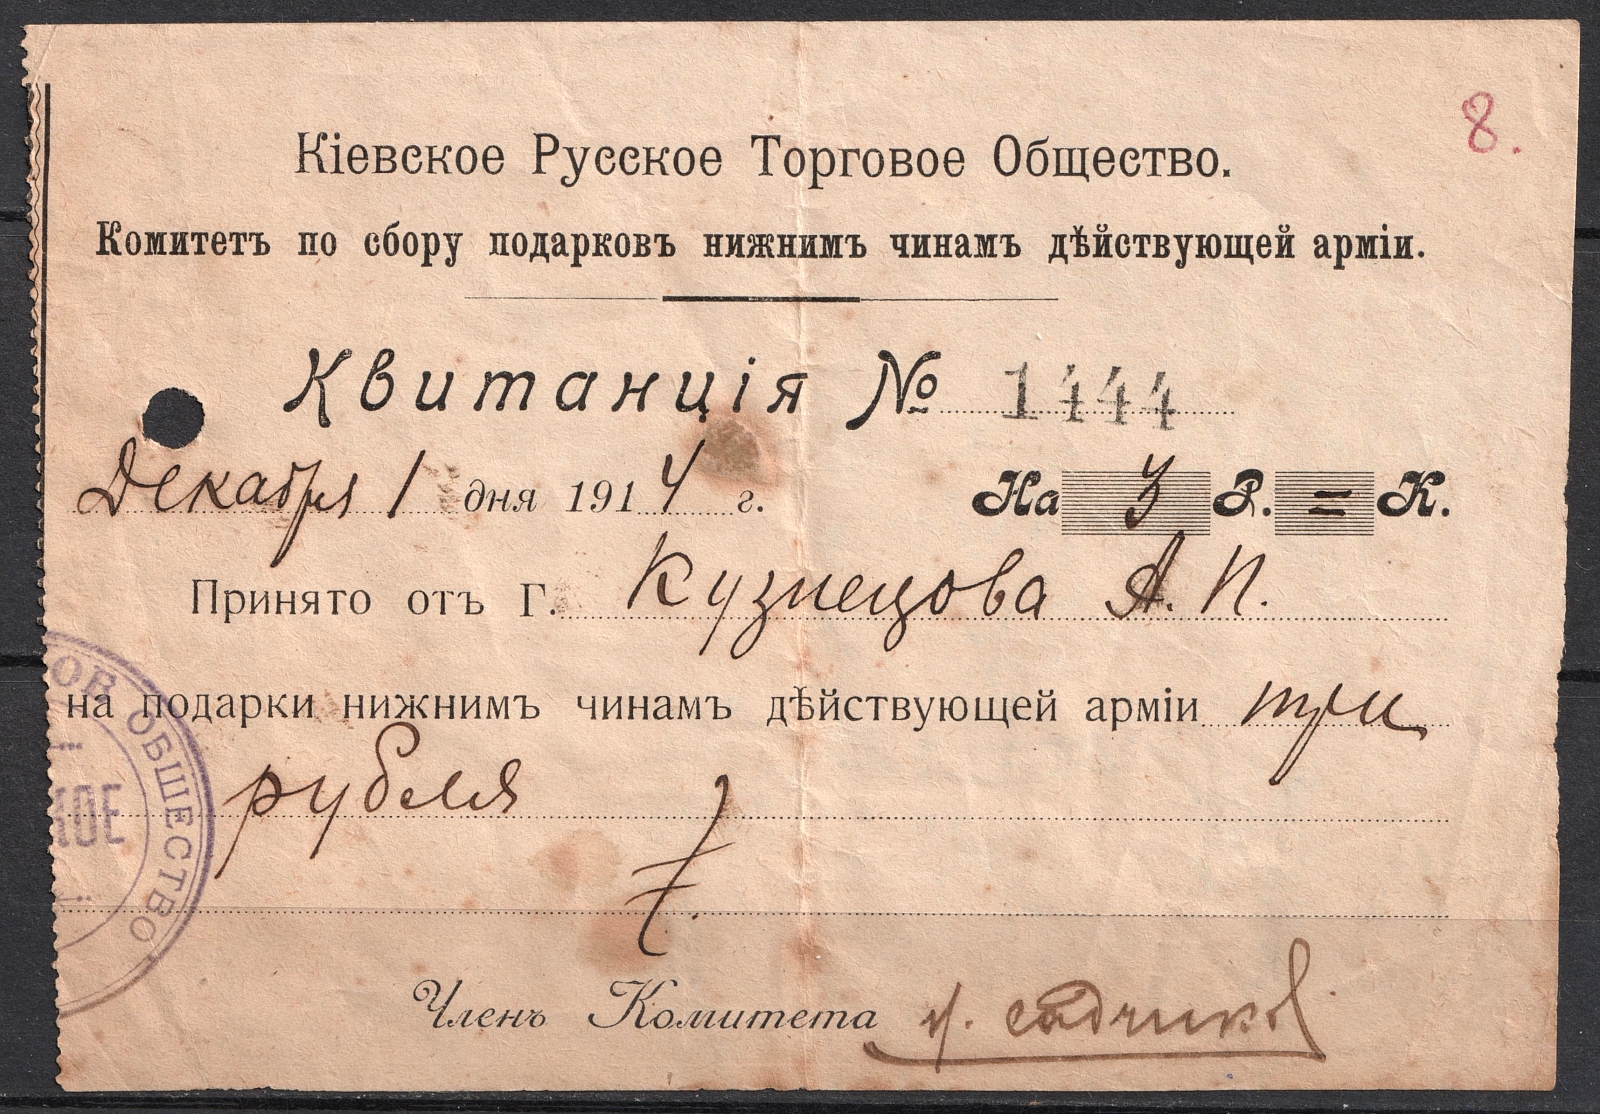 8.
Кіевское Русское Торговое Общество.
Комитетъ по сбору подарковъ нижнимъ чинамъ дѣйствующей арміи.
Квитанція № 1444
Декабря 1 дня 1914 г. На 3 Р. = К.
Принято отъ Г. Кузнецова А. П.
на подарки нижнимъ чинамъ дѣйствующей арміи три
рубля
Членъ Комитета
ОВ ОБЩЕСТВО
КОЕ